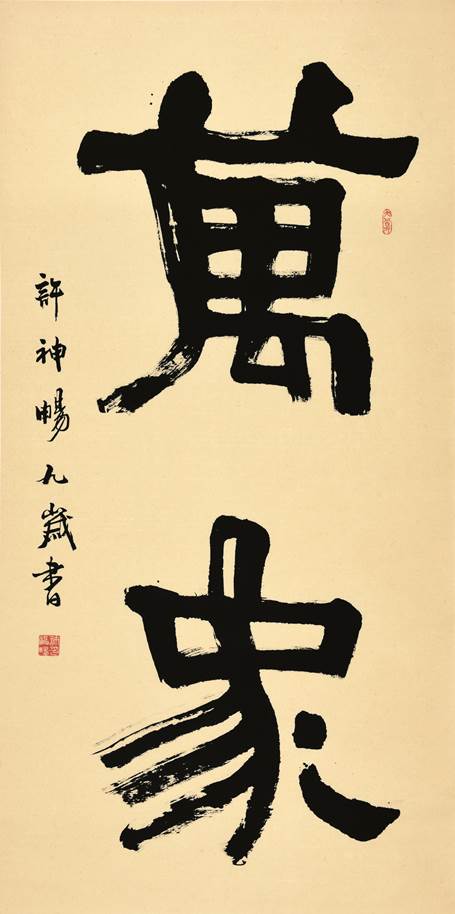 萬象
許神暢九歲書